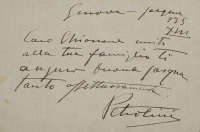 Genova - pasqua
935
XIII
Caro Chiossone uniti
alla tua famiglia ti
auguro buona pasqua
tanto affettuosamente
Petrolini